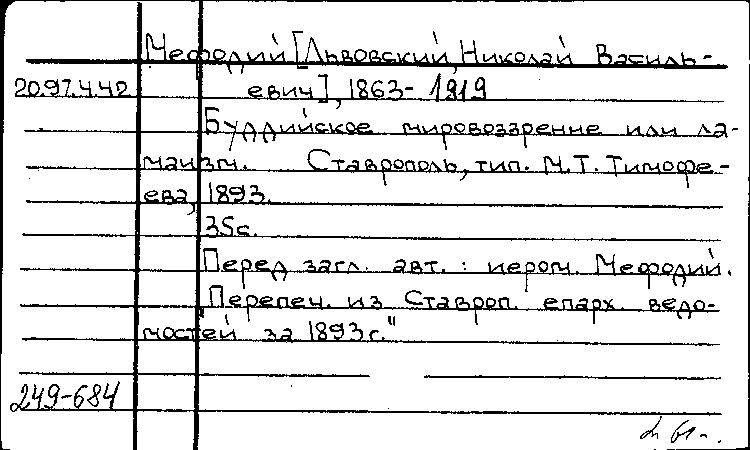 Мефодий [Львовский, Николай Василь-
20.97.4.42 евич], 1863-1919
Буддийское мировоззрение или ла-
маизм. Ставрополь, тип. М.Т. Тимофе-
ева, 1893.
35с.
Перед загл. авт.: иером. Мефодий.
"Перепеч. из Ставроп. епарх. ведо-
мостей за 1893г."
249-684